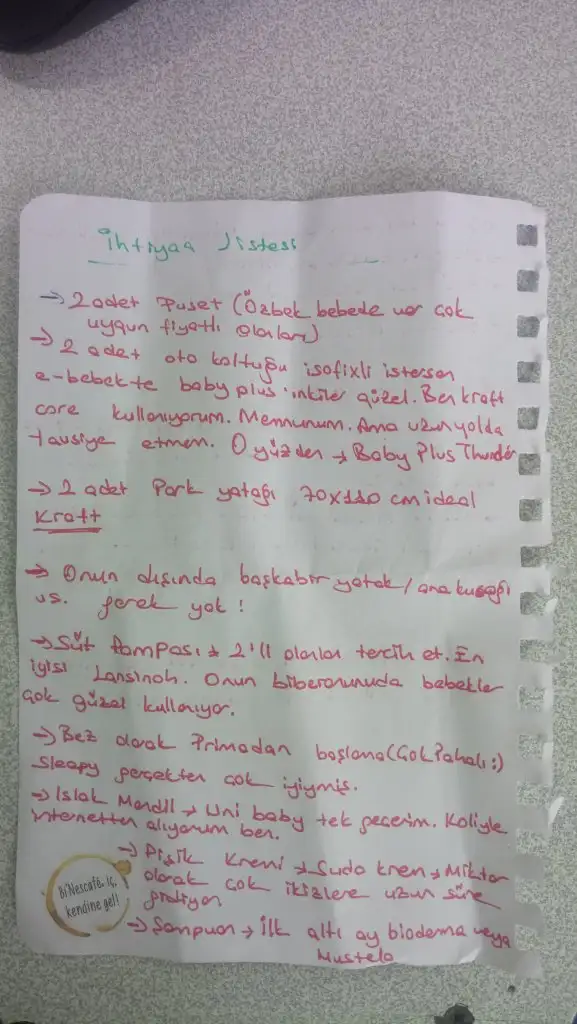 ihtiyaç listesi
→ 2 adet Puset (Özbek bebede var çok
uygun fiyatlı olanları)
→ 2 adet oto koltuğu isofixli istersen
e-bebekte baby plus'inkiler güzel. Ben kraft
core kullanıyorum. Memnunum. Ama uzun yolda
tavsiye etmem. O yüzden → Baby Plus Thunder
→ 2 adet Park yatağı 70x110 cm ideal
Kraft
→ Onun dışında başkabir yatak/ana kucağı
vs. gerek yok!
→ Süt Pompası → 2'li olanlar tercih et. En
iyisi Lansinoh. Onun biberonunuda bebekler
çok güzel kullanıyor.
→ Bez olarak Primadan başlama (Çok Pahalı :)
Sleepy gerçekten çok iyiymiş.
→ Islak Mendil → Uni baby tek geçerim. Koliyle
internetten alıyorum ben.
→ Pişik Kremi → Sudo krem → Miktar
olarak çok ikizlere uzun süre
gidiyor
→ Şampuan → İlk altı ay bioderma veya
Mustela
Bi'Nescafé, iç,
kendine gel!